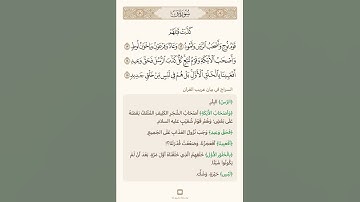 سُورَةُ ق
كَذَّبَتْ قَبْلَهُمْ
قَوْمُ نُوحٍ وَأَصْحَابُ الرَّسِّ وَثَمُودُ ۝ وَعَادٌ وَفِرْعَوْنُ وَإِخْوَانُ لُوطٍ ۝
وَأَصْحَابُ الْأَيْكَةِ وَقَوْمُ تُبَّعٍ كُلٌّ كَذَّبَ الرُّسُلَ فَحَقَّ وَعِيدِ ۝
أَفَعَيِينَا بِالْخَلْقِ الْأَوَّلِ بَلْ هُمْ فِي لَبْسٍ مِنْ خَلْقٍ جَدِيدٍ ۝
السراج في بيان غريب القرآن
﴿الرَّسِّ﴾ البِئْرِ.
﴿وَأَصْحَابُ الأَيْكَةِ﴾ أَصْحَابُ الشَّجَرِ الكَثِيفِ المُلْتَفِّ بَعْضُهُ
عَلَى بَعْضٍ، وَهُمْ قَوْمُ شُعَيْبٍ عليه السلام.
﴿فَحَقَّ وَعِيدِ﴾ وَجَبَ نُزُولُ العَذَابِ عَلَى الجَمِيعِ.
﴿أَفَعَيِينَا﴾ أَفَعَجَزْنَا، وَضَعُفَتْ قُدْرَتُنَا؟!
﴿بِالْخَلْقِ الأَوَّلِ﴾ خَلْقِهِمُ الَّذِي خَلَقْنَاهُ أَوَّلَ مَرَّةٍ، بَعْدَ أَنْ لَمْ
يَكُونُوا شَيْئًا.
﴿لَبْسٍ﴾ حَيْرَةٍ، وَشَكٍّ.